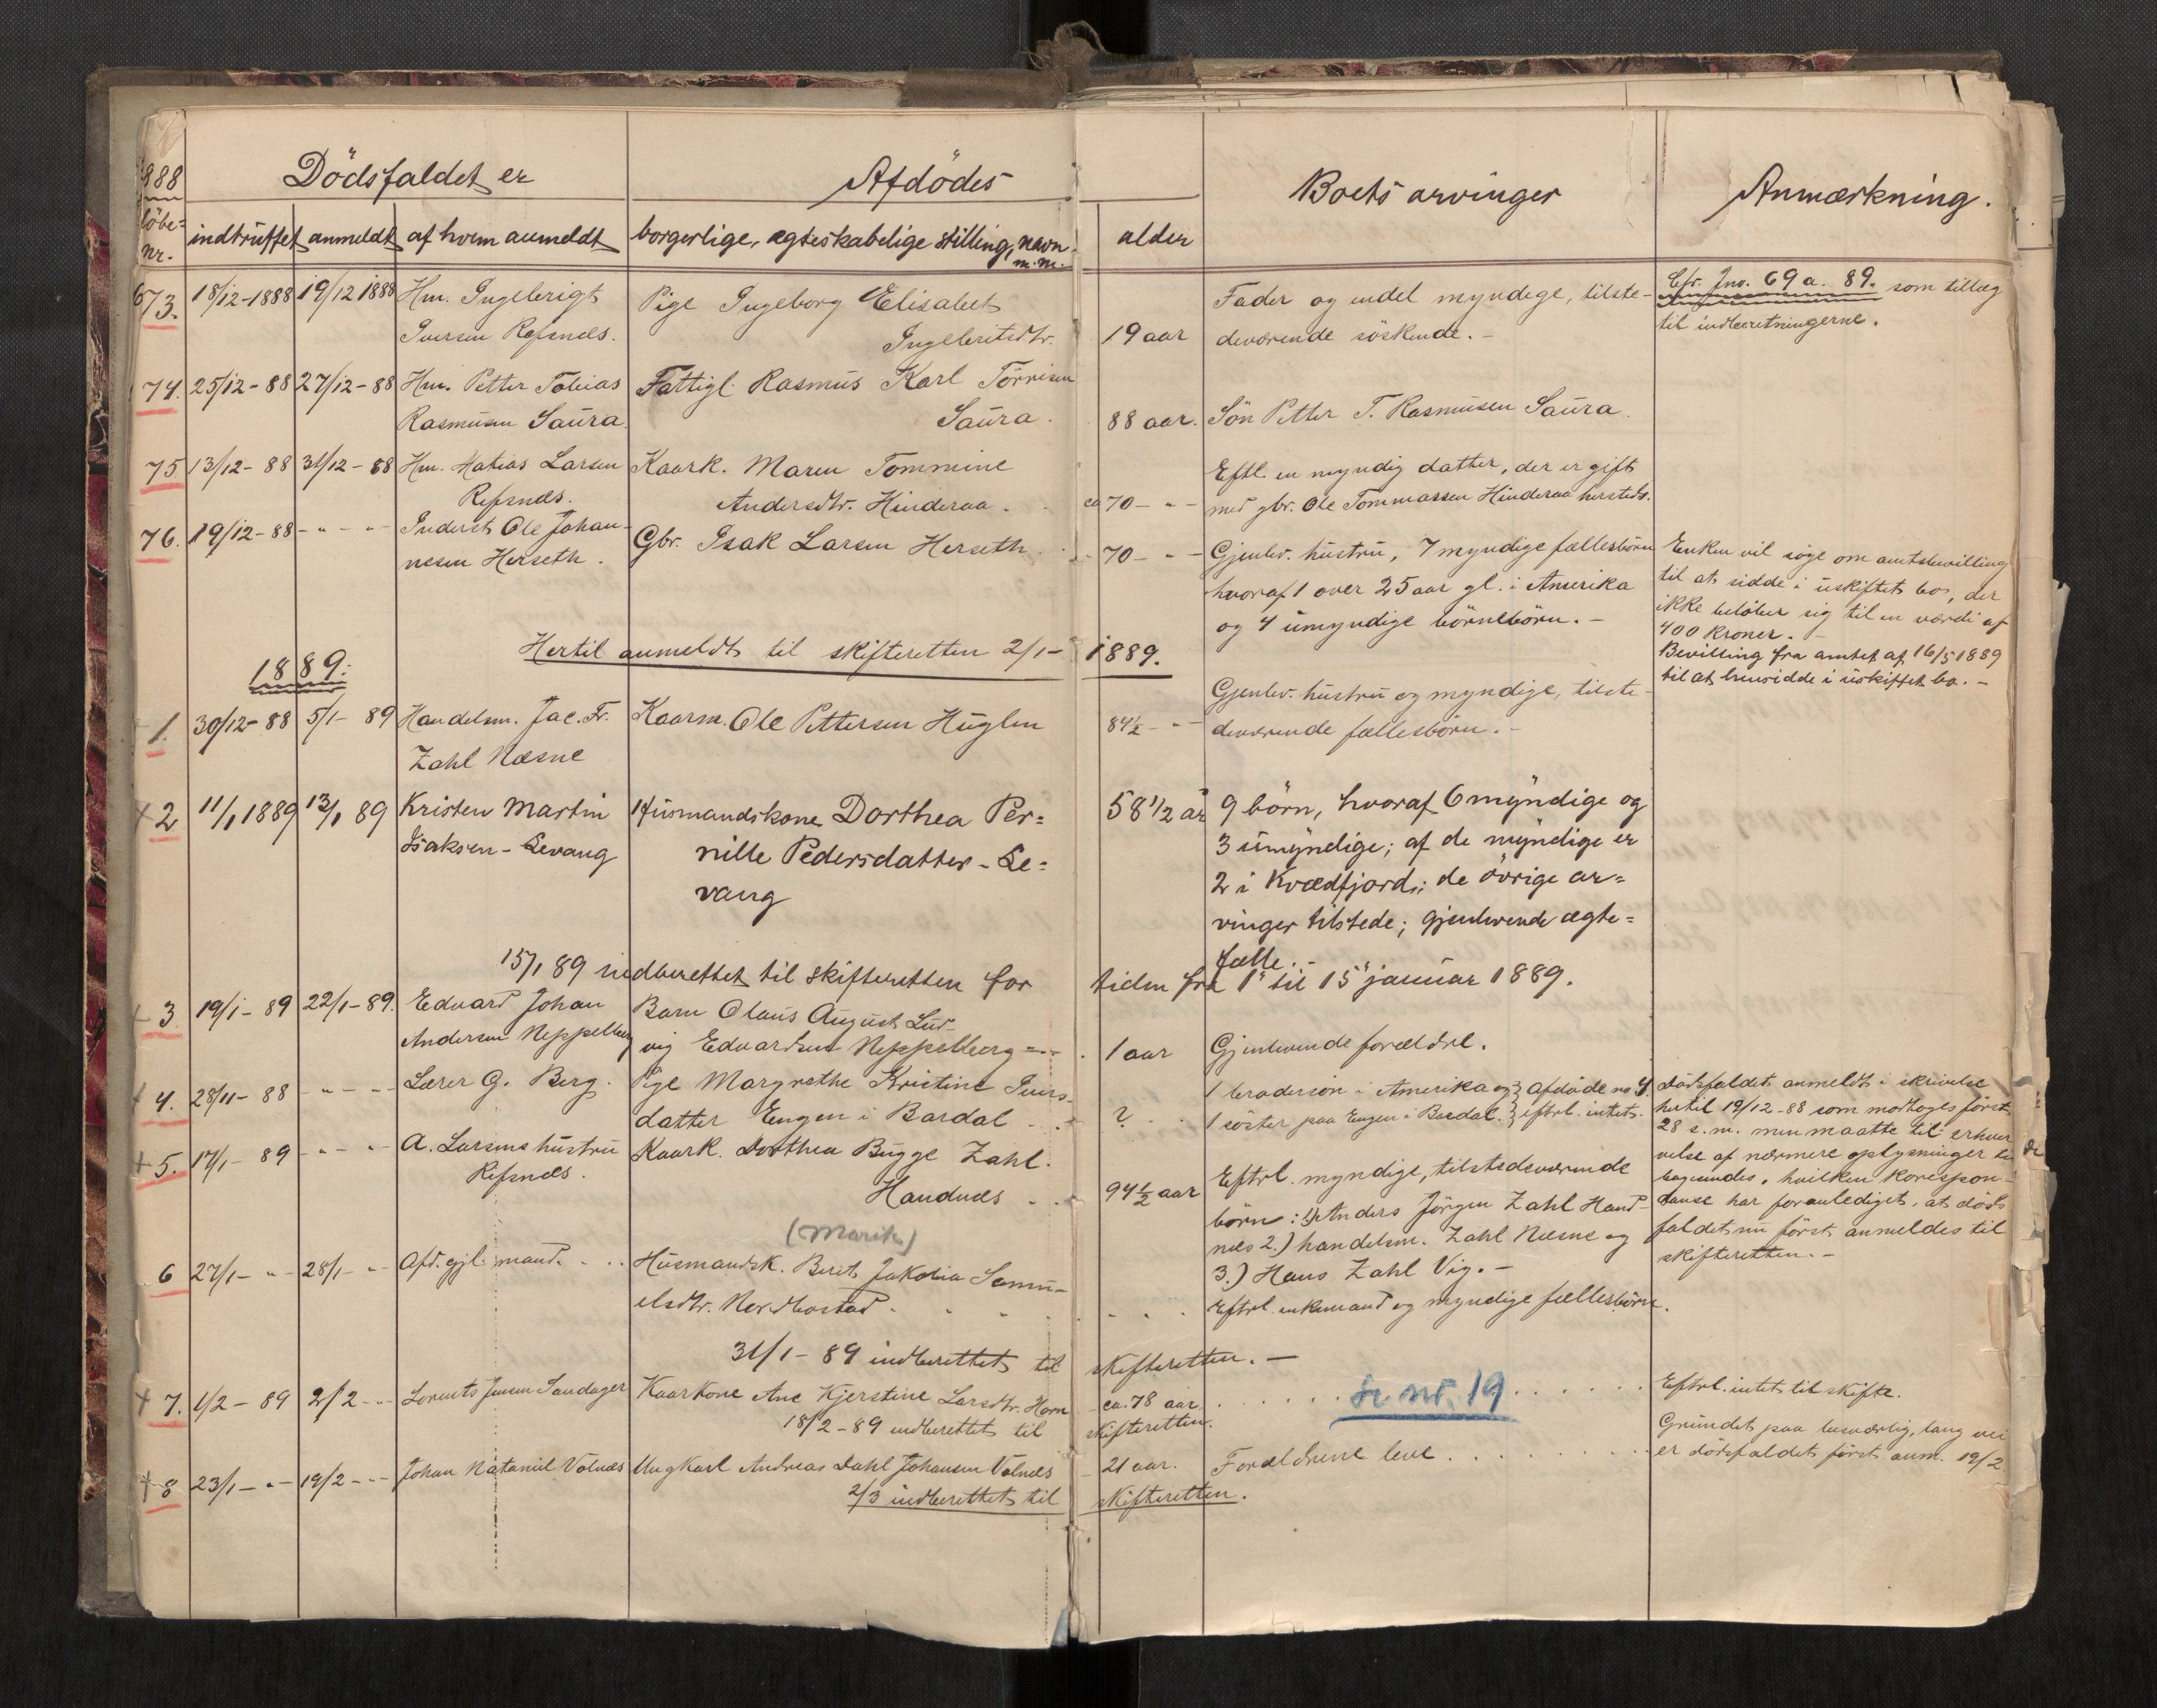 1888
Dödsfaldet er
Afdödes
Boets arvinger
Anmærkning.
löbe=
nr.
indtruffet
anmeldt
af hvem anmeldt
borgerlige, ægteskabelige stilling, navn
m.m.
alder
673.
18/12-1888
19/12 1888
Hm. Ingebrigt
Iversen Refsnes.
Pige Ingeborg Elisabet
Ingebritsdtr.
19 aar
Fader og endel myndige, tilste-
deværende söskende.-
Cfr. Jnr. 69 a. 89. som tillæg
til indberetningerne.
74.
25/12-88
27/12-88
Hm. Petter Tobias
Rasmusen Saura.
Fattigl. Rasmus Karl Törrisen
Saura.
88 aar.
Sön Petter T. Rasmusen Saura.
75
13/12-88
31/12-88
Hm. Matias Larsen
Refsnes.
Kaark. Maren Tommine
Andersdtr. Hinderaa.
ca 70 - " -
Eftl. en myndig datter, der er gift
med gbr. Ole Tommassen Hinderaa hersteds.
76.
19/12-88
- " - "
Inderst Ole Johan-
nesen Herseth.
Gbr. Isak Larsen Herseth
70 - " -
Gjenlev. hustru, 7 myndige fællesbörn
hvoraf 1 over 25 aar gl. i Amerika
og 4 umyndige börnebörn.-
Enken vil söge om amtsbevilling
til at sidde i uskiftet bo, der
ikke belöber sig til en værdi af
400 kroner.-
Bevilling fra amtet af 16/5 1889
til at hensidde i uskiftet bo.-
Hertil anmeldt til skifteretten 2/1- 1889.
1889:
+ 1.
30/12-88
5/1- 89
Handelsm. Jac. Fr.
Zahl Næsne
Kaarm. Ole Pettersen Huglen
84½ - " -
Gjenlev. hustru og myndige, tilste-
deværende fællesbörn.-
+ 2
11/1 1889
13/1 89
Kristen Martin
Isaksen - Levang
Husmandskone Dorthea Per=
nille Pedersdatter - Le=
vang
58 1/2 år
9 börn, hvoraf 6 myndige og
3 umyndige; af de myndige er
2 i Kvædfjord; de övrige ar=
vinger tilstede; gjenlevende ægte=
fælle.-
15/1 89 indberettet til skifteretten for tiden fra 1 til 15 januar 1889.
+ 3
19/1- 89
22/1-89.
Edvard Johan
Andersen Neppelberg
Barn Olaus August Lud-
vig Edvardsen Neppelberg
1 aar
Gjenlevende forældre.
+ 4.
28/11-88
- " - -
Lærer G. Berg.
Pige Margrethe Kristine Ivers-
datter Engen i Bardal
?
1 brodersön i Amerika og
1 söster paa Engen i Bardal.
Afdöde no 4
eftrl. intet.
Dödsfaldet anmeldt i skrivelse
hertil 19/12-88 som modtoges först
28 s.m. men maatte til erhver-
velse af nærmere oplysninger til
bagesendes, hvilken korrespon-
danse har foranlediget, at döds
faldet nu först anmeldes til
skifteretten.-
+ 5.
17/1- 89
- " - "
A. Larsens hustru
Refsnes.
Kaark. Dorthea Bugge Zahl
Handnes
94½ aar
Eftrl. myndige, tilstedeværende
börn: 1) Anders Jörgen Zahl Hand-
nes 2.) handelsm. Zahl Næsne og
3.) Hans Zahl Vig.-
(Marik)
6
27/1- " -
28/1- "
Afd. gjl. mand.
Husmandsk. Berit Jakobia Samu-
elsdtr. Nordbostad
Eftrl. enkemand og myndige fællesbörn.
31/1-89 indberettet til skifteretten.-
+ 7.
1/2-89
2/2 - "
Lorents Jensen Sandager
Kaarkone Ane Kjerstine Larsdtr. Horn
ca. 78 aar.
Se nr. 19
Eftrl. intet til skifte.
18/2-89 indberettet til skifteretten.
+ 8
23/1- " -
19/2 - "
Johan Nataniel Volnes
Ungkarl Andreas Dahl Johansen Volnes
21 aar.
Forældrene leve
Grundet paa besværlig, lang vei
er dödsfaldet först anm. 19/2
2/3 indberettet til skifteretten.